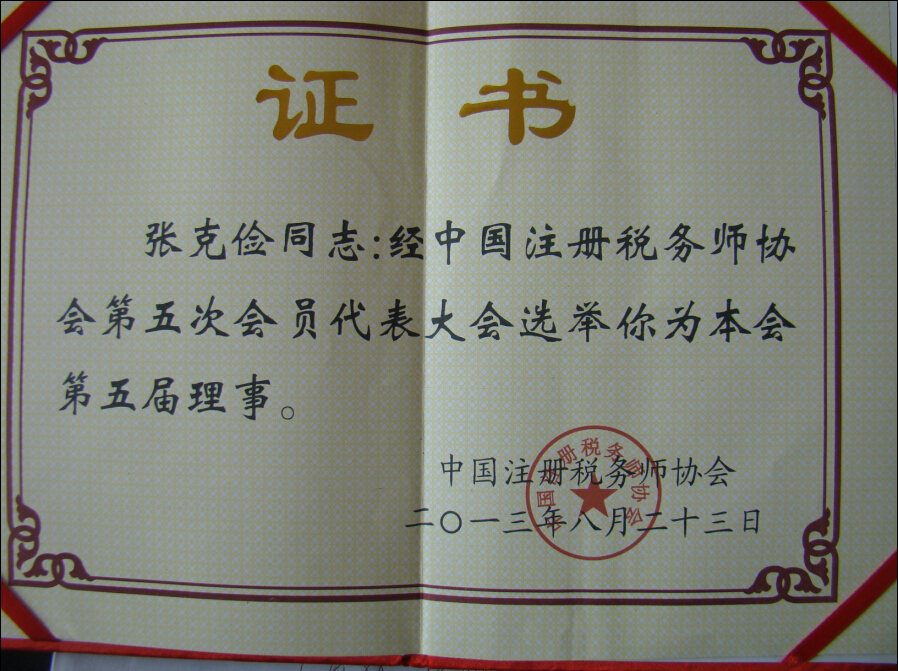 证书
张克俭同志:经中国注册税务师协
会第五次会员代表大会选举你为本会
第五届理事。
中国注册税务师协会
中国注册税务师协会
二〇一三年八月二十三日